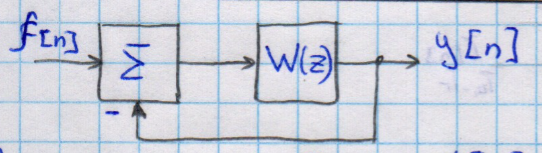 f[n] Σ W(z) y[n]
-